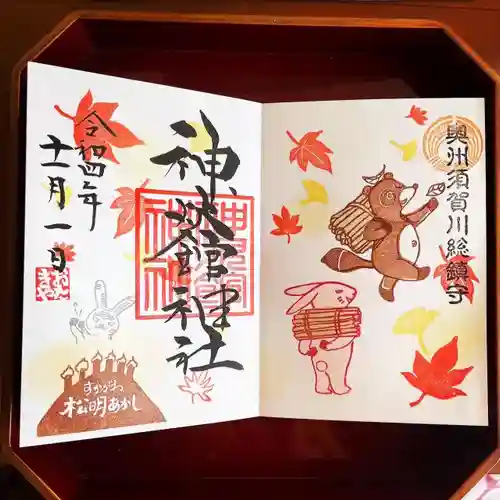 奥州須賀川総鎮守
神炊館神社
令和四年
十一月一日
すかがわ
松明あかし